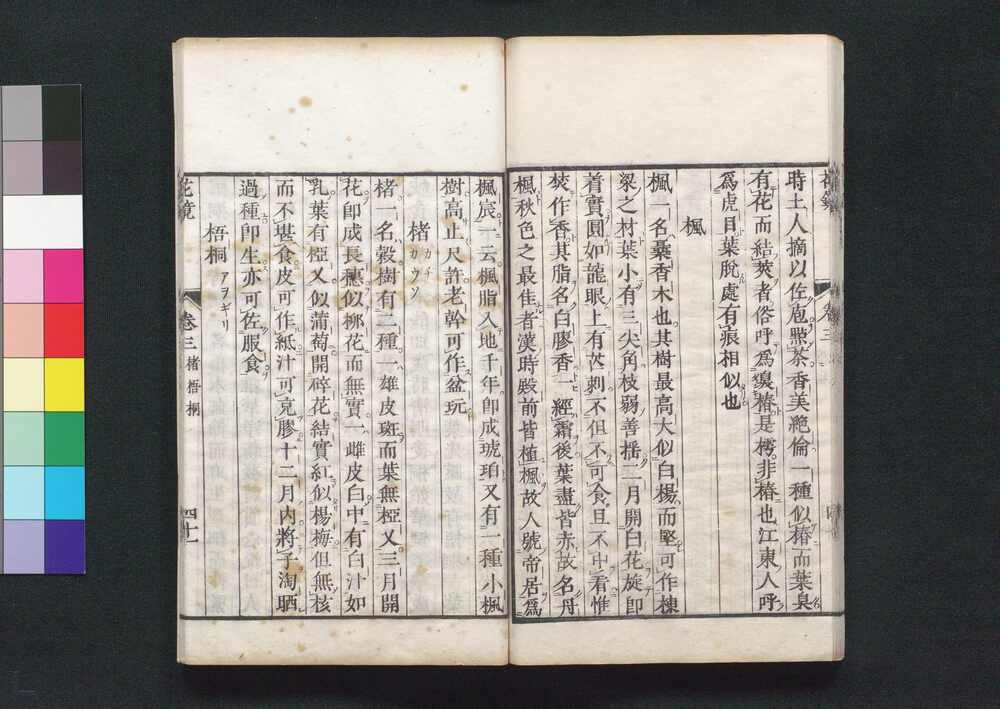 時土人摘以佐庖點茶香美絶倫一種似椿而葉臭
有花而結莢者俗呼爲臭椿是樗非椿也江東人呼
爲虎目葉脫處有痕相似也
楓
楓一名香木也其樹最高大似白楊而堅可作棟
梁之材葉小有三尖角枝弱善揺二月開白花旋卽
着實圓如龍眼上有芒刺不但不可食且不中看惟
焚作香其脂名白膠香一經霜後葉盡皆赤故名丹
楓秋色之最佳者漢時殿前皆植楓故人號帝居爲
楓宸一云楓脂入地千年卽成琥珀又有一種小楓
樹高止尺許老幹可作盆玩
楮 カヂ カウソ
楮一名穀樹有二種一雄皮斑而葉無椏又三月開
花卽成長穗似桞花而無實一雌皮白中有白汁如
乳葉有椏又似蒲萄開碎花結實紅似楊梅但無核
而不堪食皮可作紙汁可充膠十二月內將子淘晒
過種卽生亦可佐服食
梧桐 アヲギリ
花鏡 卷三 楮 梧桐 四十一